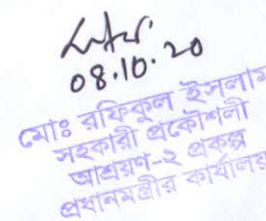 08.10.20
মোঃ রফিকুল ইসলাম
সহকারী প্রকৌশলী
আশ্রয়ণ-২ প্রকল্প
প্রধানমন্ত্রীর কার্যালয়